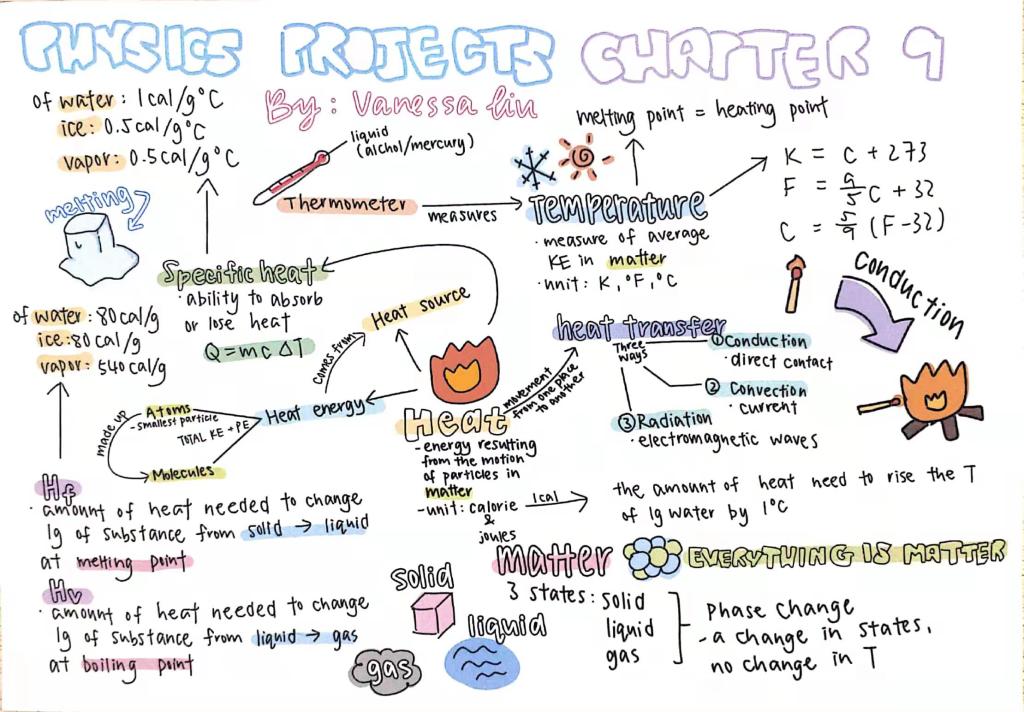 PHYSICS PROJECTS CHAPTER 9
By: Vanessa liu
of water: 1cal/g°C
ice: 0.5cal/g°C
vapor: 0.5cal/g°C
melting
Specific heat
· ability to absorb
or lose heat
Q=mcΔT
liquid
(alchol/mercury)
Thermometer
measures
melting point = heating point
Temperature
· measure of average
KE in matter
· unit: K, °F, °C
K = C + 273
F = 9/5 C + 32
C = 5/9 (F-32)
conduction
of water: 80cal/g
ice: 80cal/g
vapor: 540cal/g
Heat source
comes from
Heat energy
Atoms
-smallest particle
TOTAL KE + PE
made up
Molecules
Heat
-energy resulting
from the motion
of particles in
matter
-unit: calorie
&
joules
movement
from one place
to another
heat transfer
Three
ways
①Conduction
· direct contact
② Convection
· current
③Radiation
· electromagnetic waves
1cal
the amount of heat need to rise the T
of 1g water by 1°C
Hf
· amount of heat needed to change
1g of substance from solid → liquid
at melting point
Hv
· amount of heat needed to change
1g of substance from liquid → gas
at boiling point
solid
liquid
gas
matter
EVERYTHING IS MATTER
3 states: solid
liquid
gas
Phase change
-a change in states,
no change in T